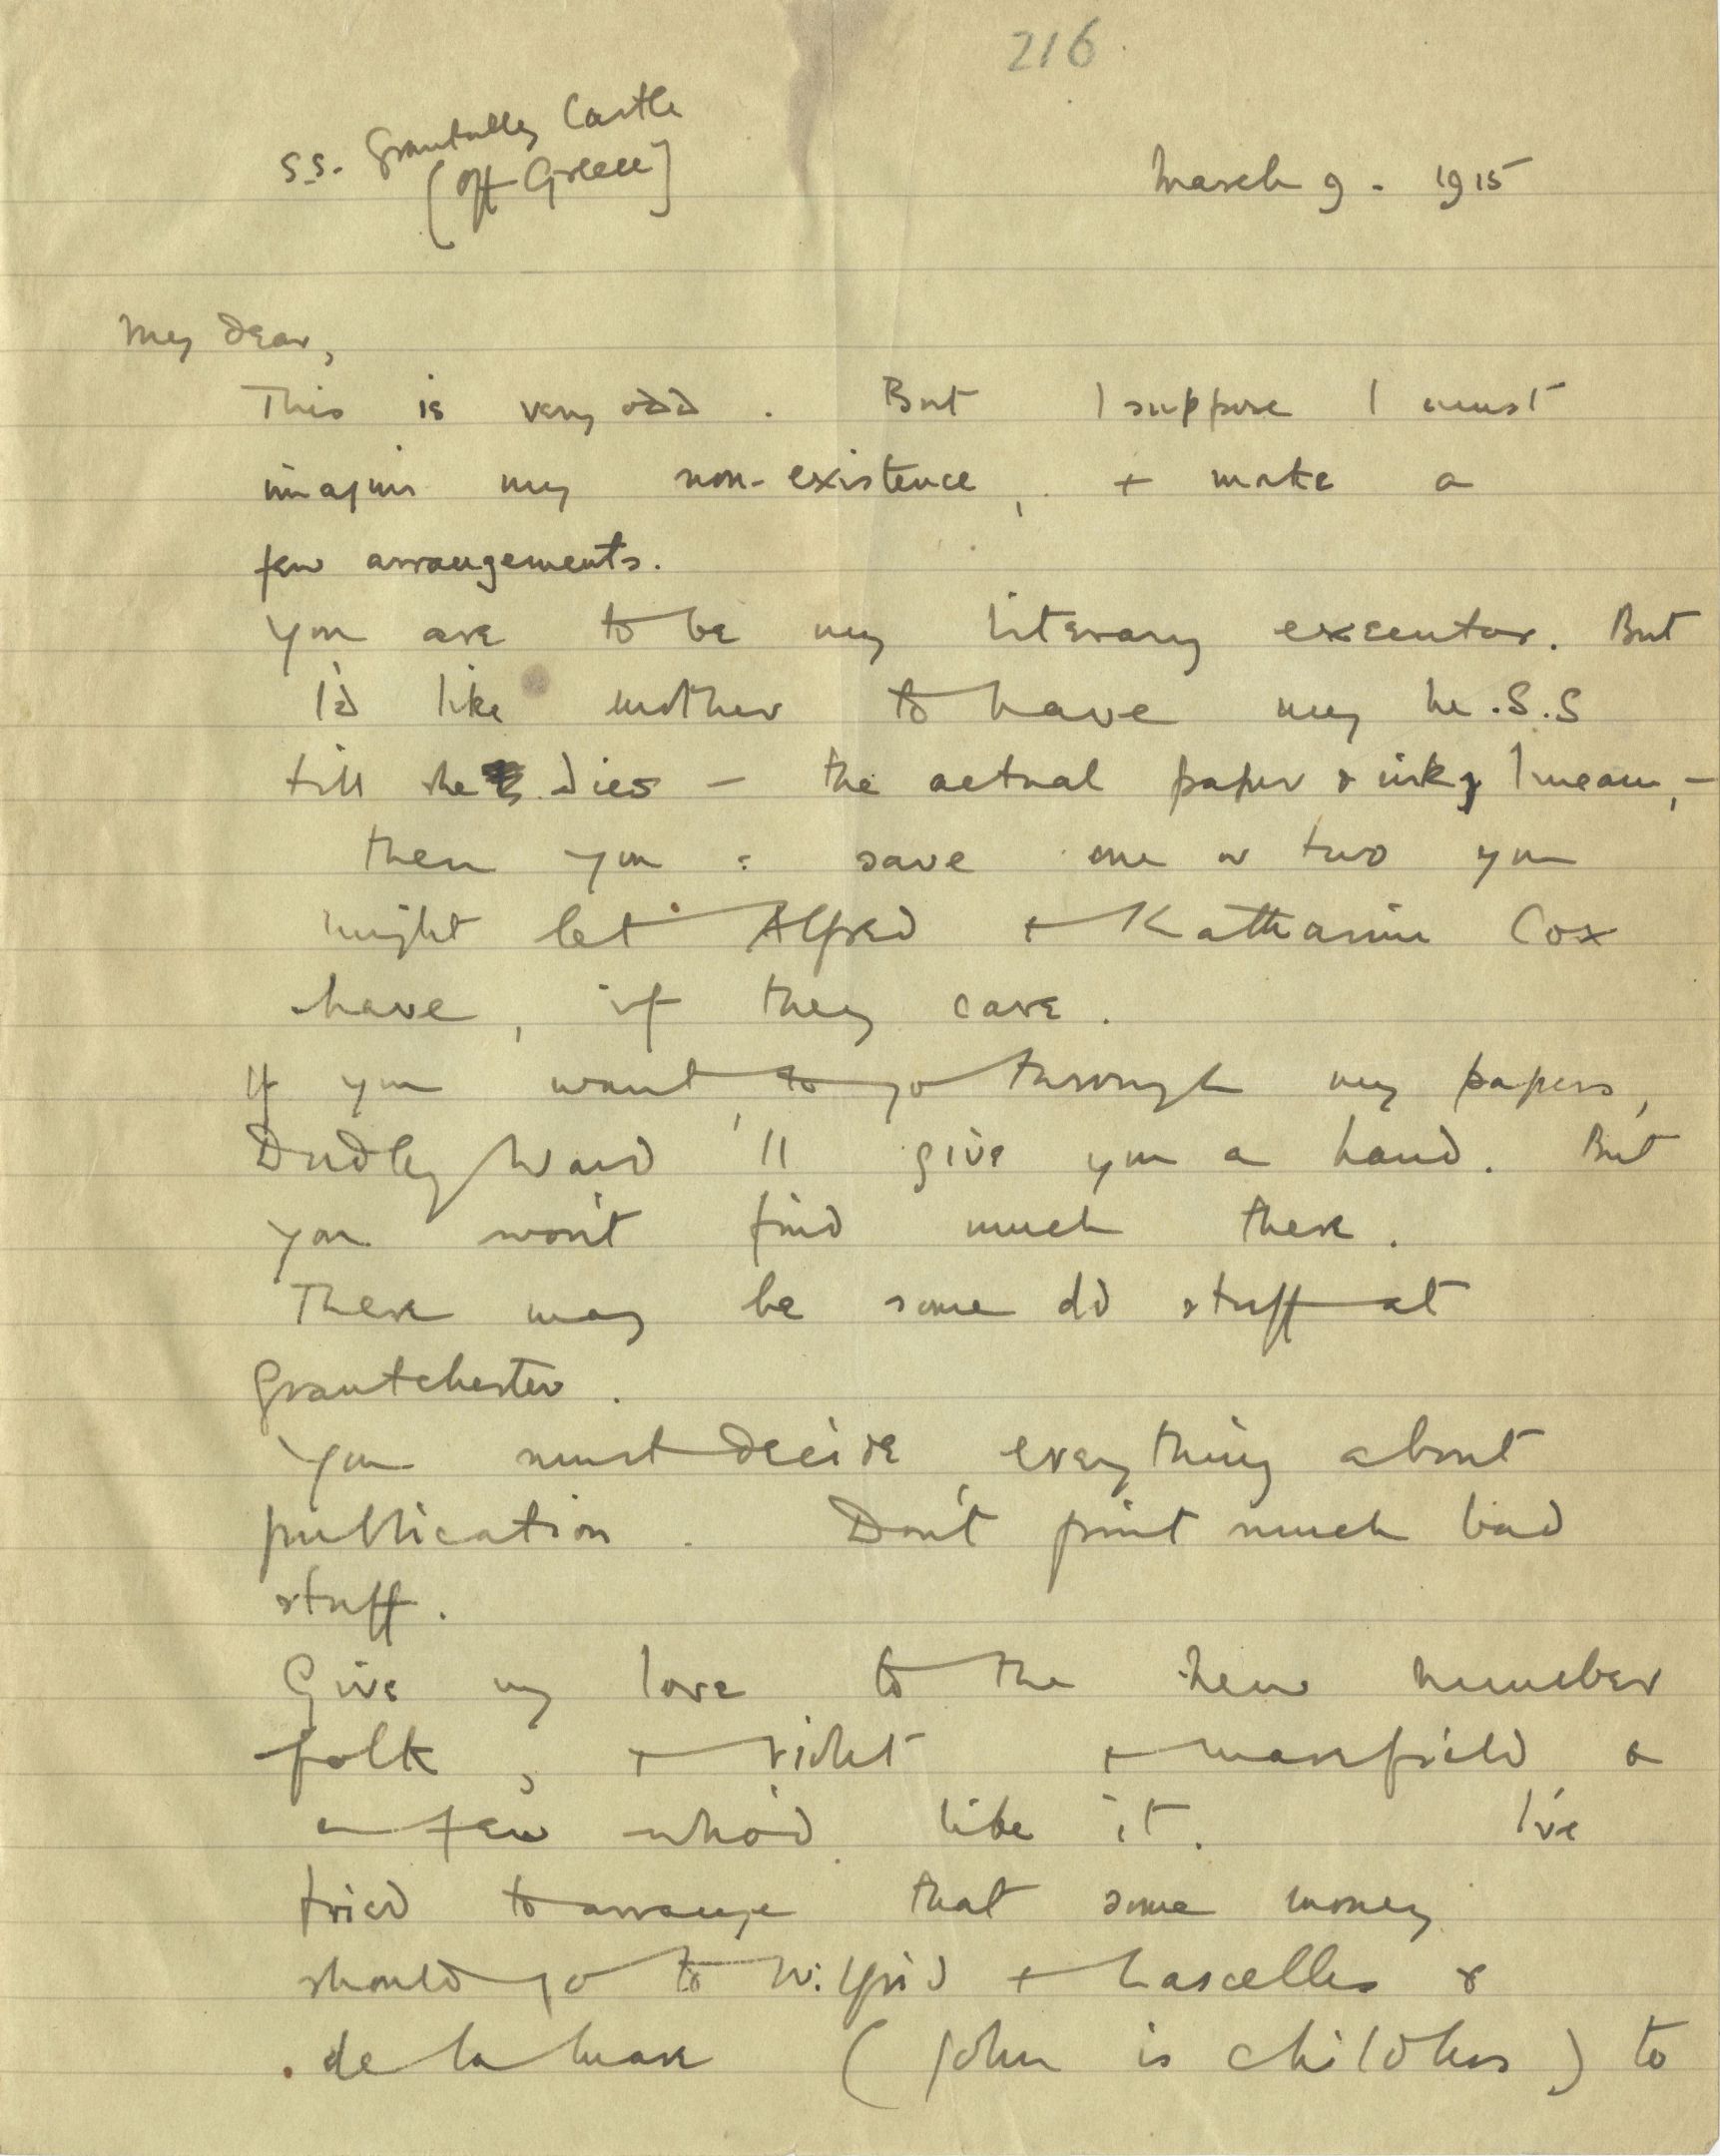 216
S.S. Grantully Castle
(off Greece]
March 9. 1915
My dear,
This is very odd. But I suppose I must
imagine my non-existence, + make a
few arrangements.
You are to be my literary executor. But
I'd like mother to have my M.S.S
till she dies – the actual paper & ink I mean, –
then you: save one or two you
might let Alfred + Katharine Cox
have, if they care.
If you want to go through my papers,
Dudley Ward'll give you a hand. But
you won't find much there.
There may be some old stuff at
Grantchester.
You must decide everything about
publication. Don't print much bad
stuff.
Give my love to the New Number
folk, + Violet + Masefield &
a few who'd like it. I've
tried to arrange that some money
should go to Wilfrid + Lascelles &
de la Mare (John is childless) to